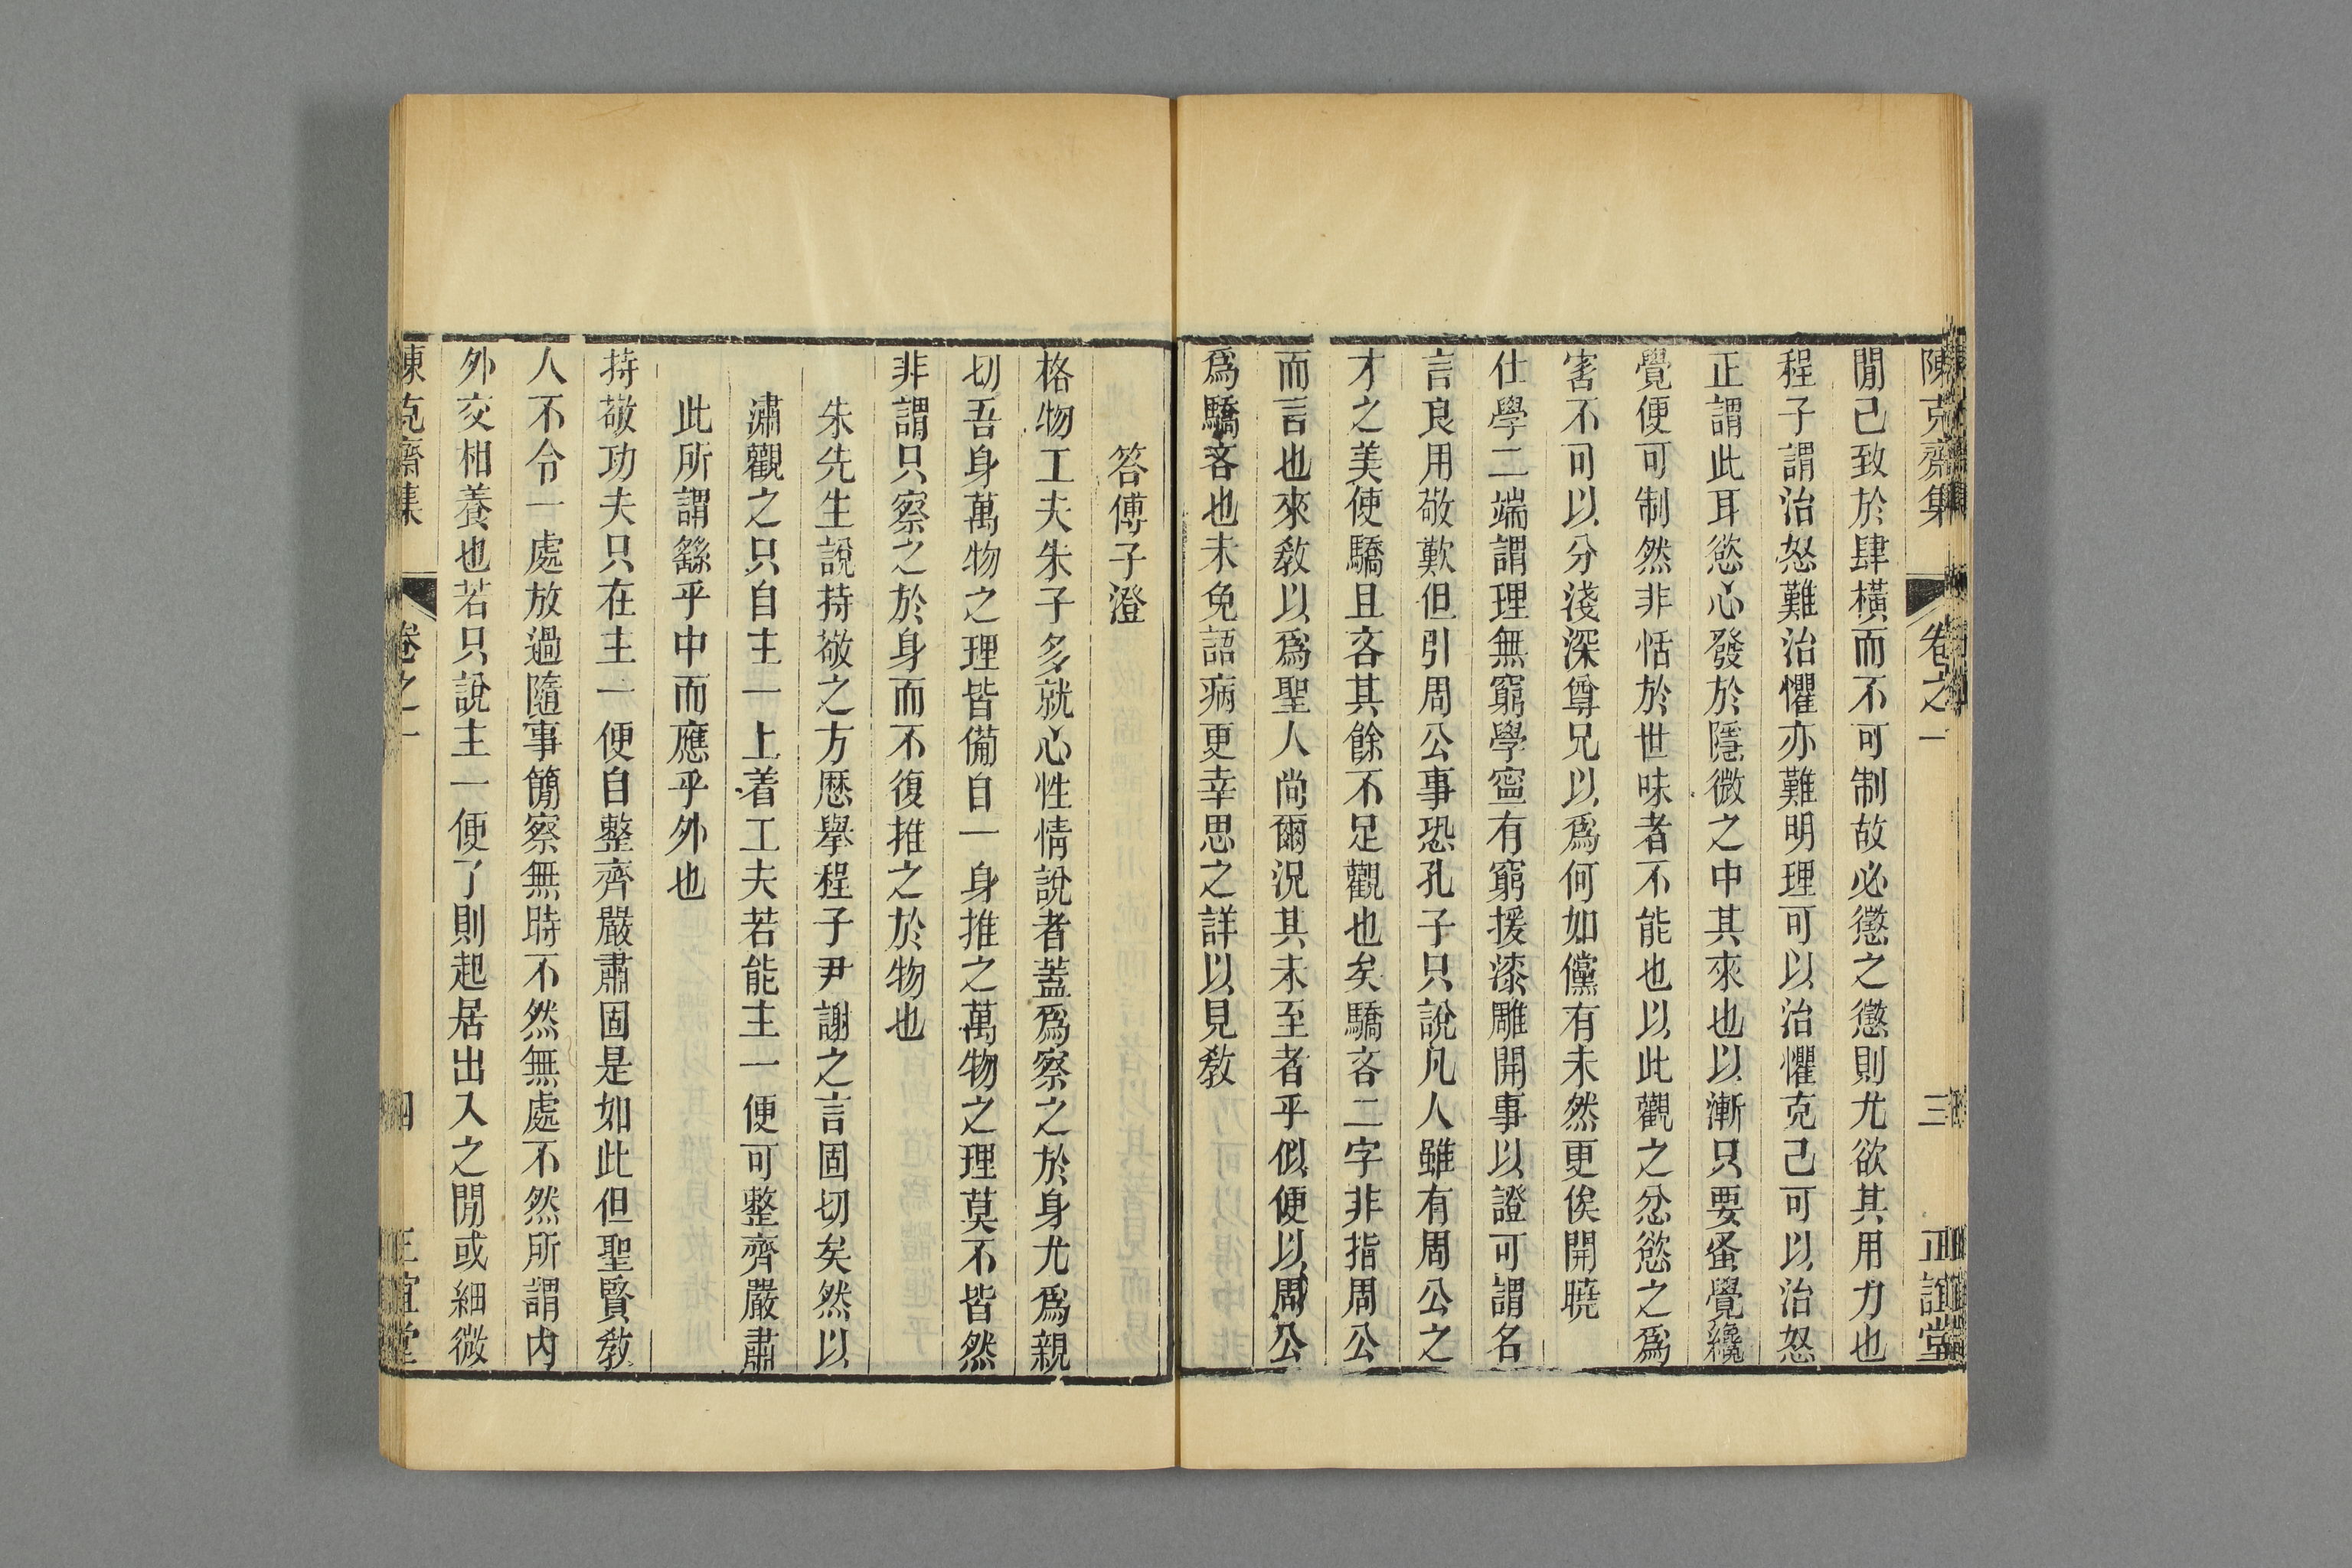 陳克齋集 卷之一 三 正誼堂
閒己致於肆橫而不可制故必懲之懲則尤欲其用力也
程子謂治怒難治懼亦難明理可以治懼克己可以治怒
正謂此耳慾心發於隱微之中其來也以漸只要蚤覺纔
覺便可制然非恬於世味者不能也以此觀之忿慾之爲
害不可以分淺深尊兄以爲何如儻有未然更俟開曉
仕學二端謂理無窮學寍有窮援漆雕開事以證可謂名
言良用敬歎但引周公事恐孔子只說凡人雖有周公之
才之美使驕且吝其餘不足觀也矣驕吝二字非指周公
而言也來敎以爲聖人尚爾況其未至者乎似便以周公
爲驕吝也未免語病更幸思之詳以見敎
答傅子澄
格物工夫朱子多就心性情說者蓋爲察之於身尤爲親
切吾身萬物之理皆備自一身推之萬物之理莫不皆然
非謂只察之於身而不復推之於物也
朱先生說持敬之方歷舉程子尹謝之言固切矣然以
潚觀之只自主一上着工夫若能主一便可整齊嚴肅
此所謂繇乎中而應乎外也
持敬功夫只在主一便自整齊嚴肅固是如此但聖賢敎
人不令一處放過隨事簡察無時不然無處不然所謂內
外交相養也若只說主一便了則起居出入之閒或細微
陳克齋集 卷之一 四 正誼堂